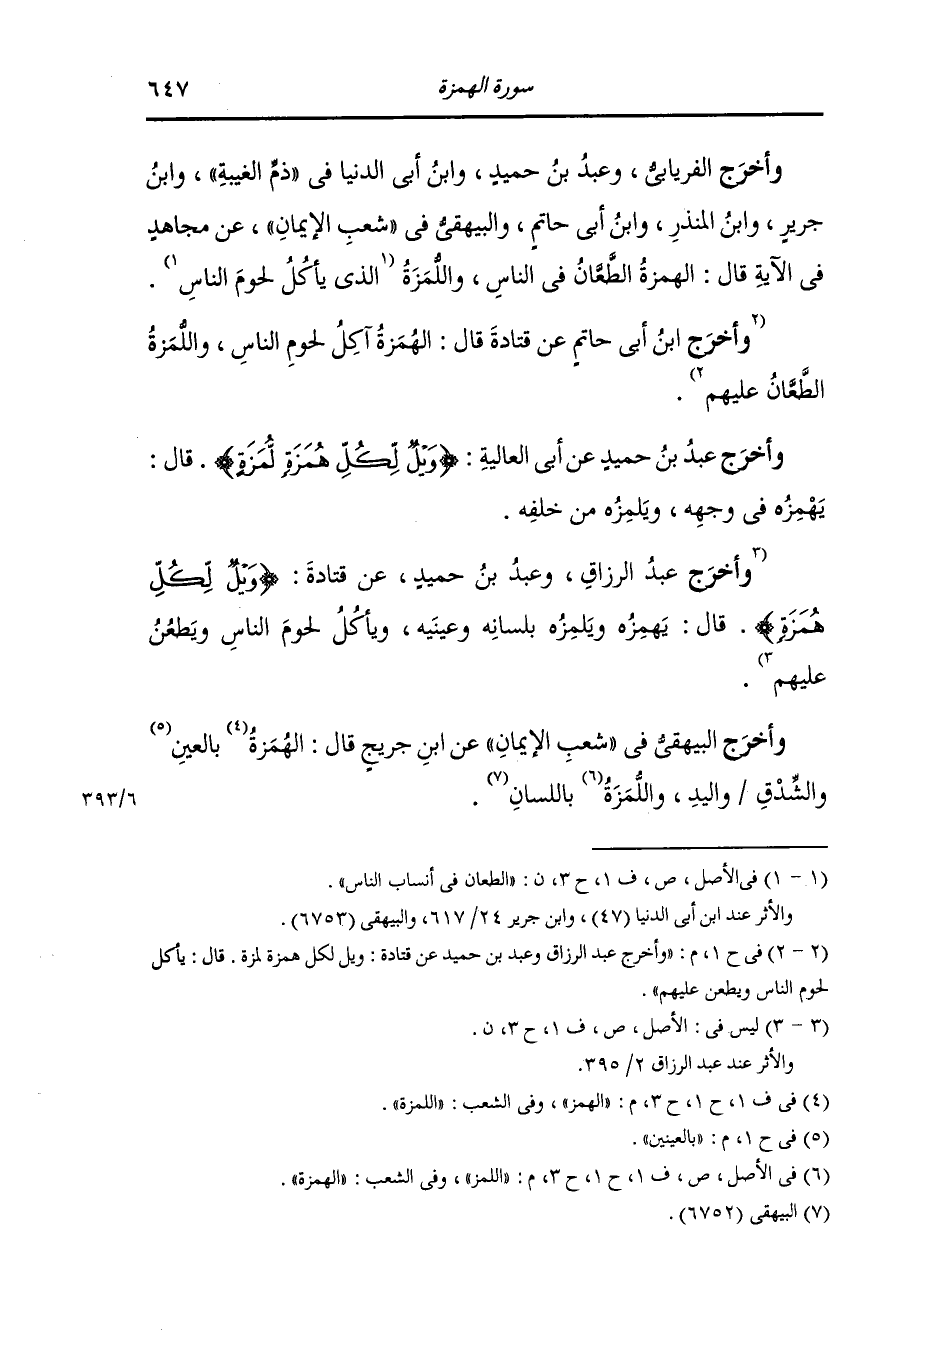 سورة الهمزة ٦٤٧
وأخرَج الفريابىُّ ، وعبدُ بنُ حميدٍ ، وابنُ أبى الدنيا فى «ذمِّ الغيبةِ» ، وابنُ
جريرٍ ، وابنُ المنذرِ ، وابنُ أبى حاتمٍ ، والبيهقىُّ فى «شعبِ الإيمانِ» ، عن مجاهدٍ
فى الآيةِ قال : الهمزةُ الطَّعَّانُ فى الناسِ ، واللُّمَزَةُ (١الذى يأكُلُ لحومَ الناسِ١) .
(٢وأخرَج ابنُ أبى حاتمٍ عن قتادةَ قال : الهُمَزةُ آكِلُ لحومِ الناسِ ، واللُّمَزةُ
الطَّعَّانُ عليهم٢) .
وأخرَج عبدُ بنُ حميدٍ عن أبى العاليةِ : ﴿وَيْلٌ لِّكُلِّ هُمَزَةٍ لُّمَزَةٍ﴾ . قال :
يَهْمِزُه فى وجهِه ، ويَلمِزُه من خلفِه .
(٣وأخرَج عبدُ الرزاقِ ، وعبدُ بنُ حميدٍ ، عن قتادةَ : ﴿وَيْلٌ لِّكُلِّ
هُمَزَةٍ﴾ . قال : يَهمِزُه ويَلمِزُه بلسانِه وعينَيه ، ويأكُلُ لحومَ الناسِ ويَطعُنُ
عليهم٣) .
وأخرَج البيهقىُّ فى «شعبِ الإيمانِ» عن ابنِ جريجٍ قال : الهُمَزةُ(٤) بالعينِ(٥)
والشِّدْقِ / واليدِ ، واللُّمَزَةُ(٦) باللسانِ(٧) . ٣٩٣/٦
(١ - ١) فى الأصل ، ص ، ف ١، ح ٣، ن : «الطعان فى أنساب الناس» .
والأثر عند ابن أبى الدنيا (٤٧) ، وابن جرير ٢٤/ ٦١٧، والبيهقى (٦٧٥٣) .
(٢ - ٢) فى ح ١، م : «وأخرج عبد الرزاق وعبد بن حميد عن قتادة : ويل لكل همزة لمزة . قال : يأكل
لحوم الناس ويطعن عليهم» .
(٣ - ٣) ليس فى : الأصل ، ص ، ف ١، ح ٣، ن .
والأثر عند عبد الرزاق ٢/ ٣٩٥.
(٤) فى ف ١، ح ١، ح ٣، م : «الهمز» ، وفى الشعب : «اللمزة» .
(٥) فى ح ١، م : «بالعينين» .
(٦) فى الأصل ، ص ، ف ١، ح ١، ح ٣، م : «اللمز» ، وفى الشعب : «الهمزة» .
(٧) البيهقى (٦٧٥٢) .